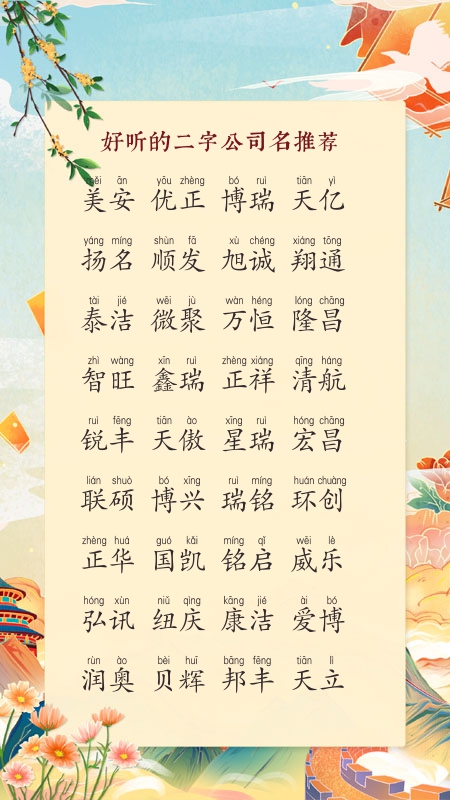 好听的二字公司名推荐
měi ān yōu zhèng bó ruì tiān yì
美安 优正 博瑞 天亿
yáng míng shùn fā xù chéng xiáng tōng
扬名 顺发 旭诚 翔通
tài jié wēi jù wàn héng lóng chāng
泰洁 微聚 万恒 隆昌
zhì wàng xīn ruì zhèng xiáng qīng háng
智旺 鑫瑞 正祥 清航
ruì fēng tiān ào xīng ruì hóng chāng
锐丰 天傲 星瑞 宏昌
lián shuò bó xīng ruì míng huán chuàng
联硕 博兴 瑞铭 环创
zhèng huá guó kǎi míng qǐ wēi lè
正华 国凯 铭启 威乐
hóng xùn niǔ qìng kāng jié ài bó
弘讯 纽庆 康洁 爱博
rùn ào bèi huī bāng fēng tiān lì
润奥 贝辉 邦丰 天立